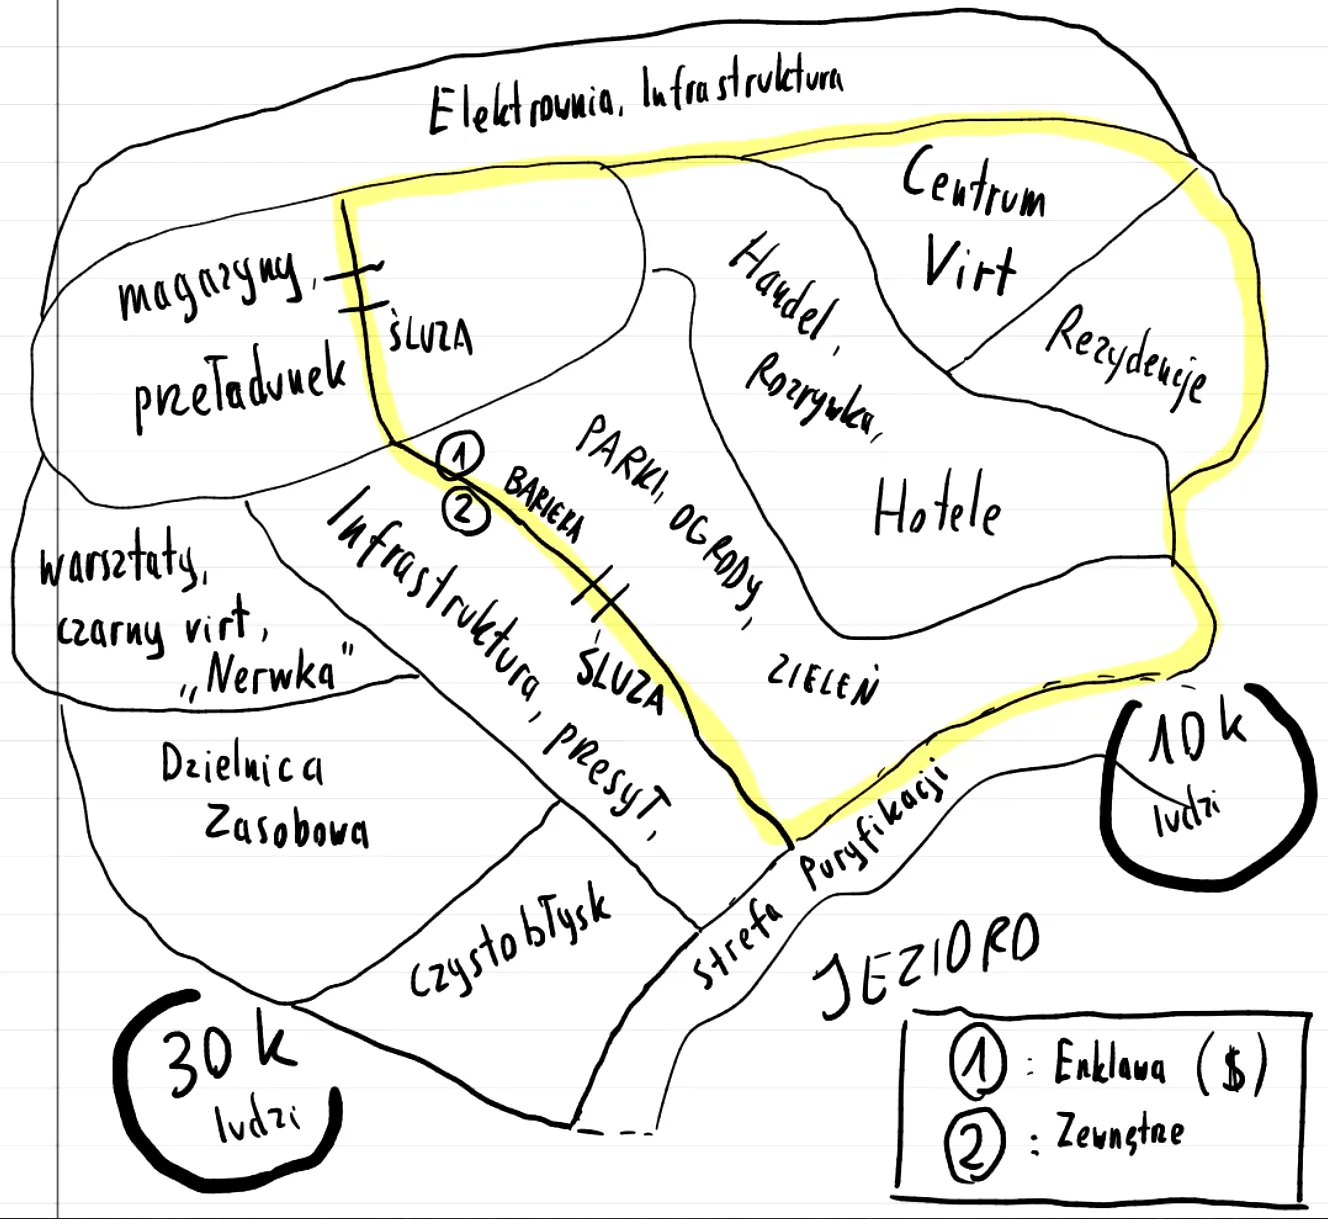 Elektrownia, Infrastruktura
Centrum
Virt
Rezydencje
Handel,
Rozrywka,
Hotele
magazyny,
przeładunek
ŚLUZA
1
2
BARIERA
PARKI, OGRODY,
ZIELEŃ
Infrastruktura, przesył,
ŚLUZA
warsztaty,
czarny virt,
„Nerwka"
Dzielnica
Zasobowa
Czystobłysk
Strefa Puryfikacji
10 k
ludzi
JEZIORO
30 k
ludzi
1 : Enklawa ($)
2 : Zewnętrze